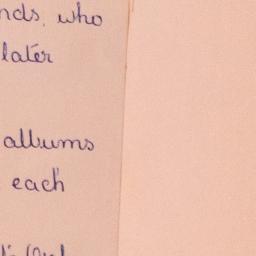 nds, who
later
albums
each